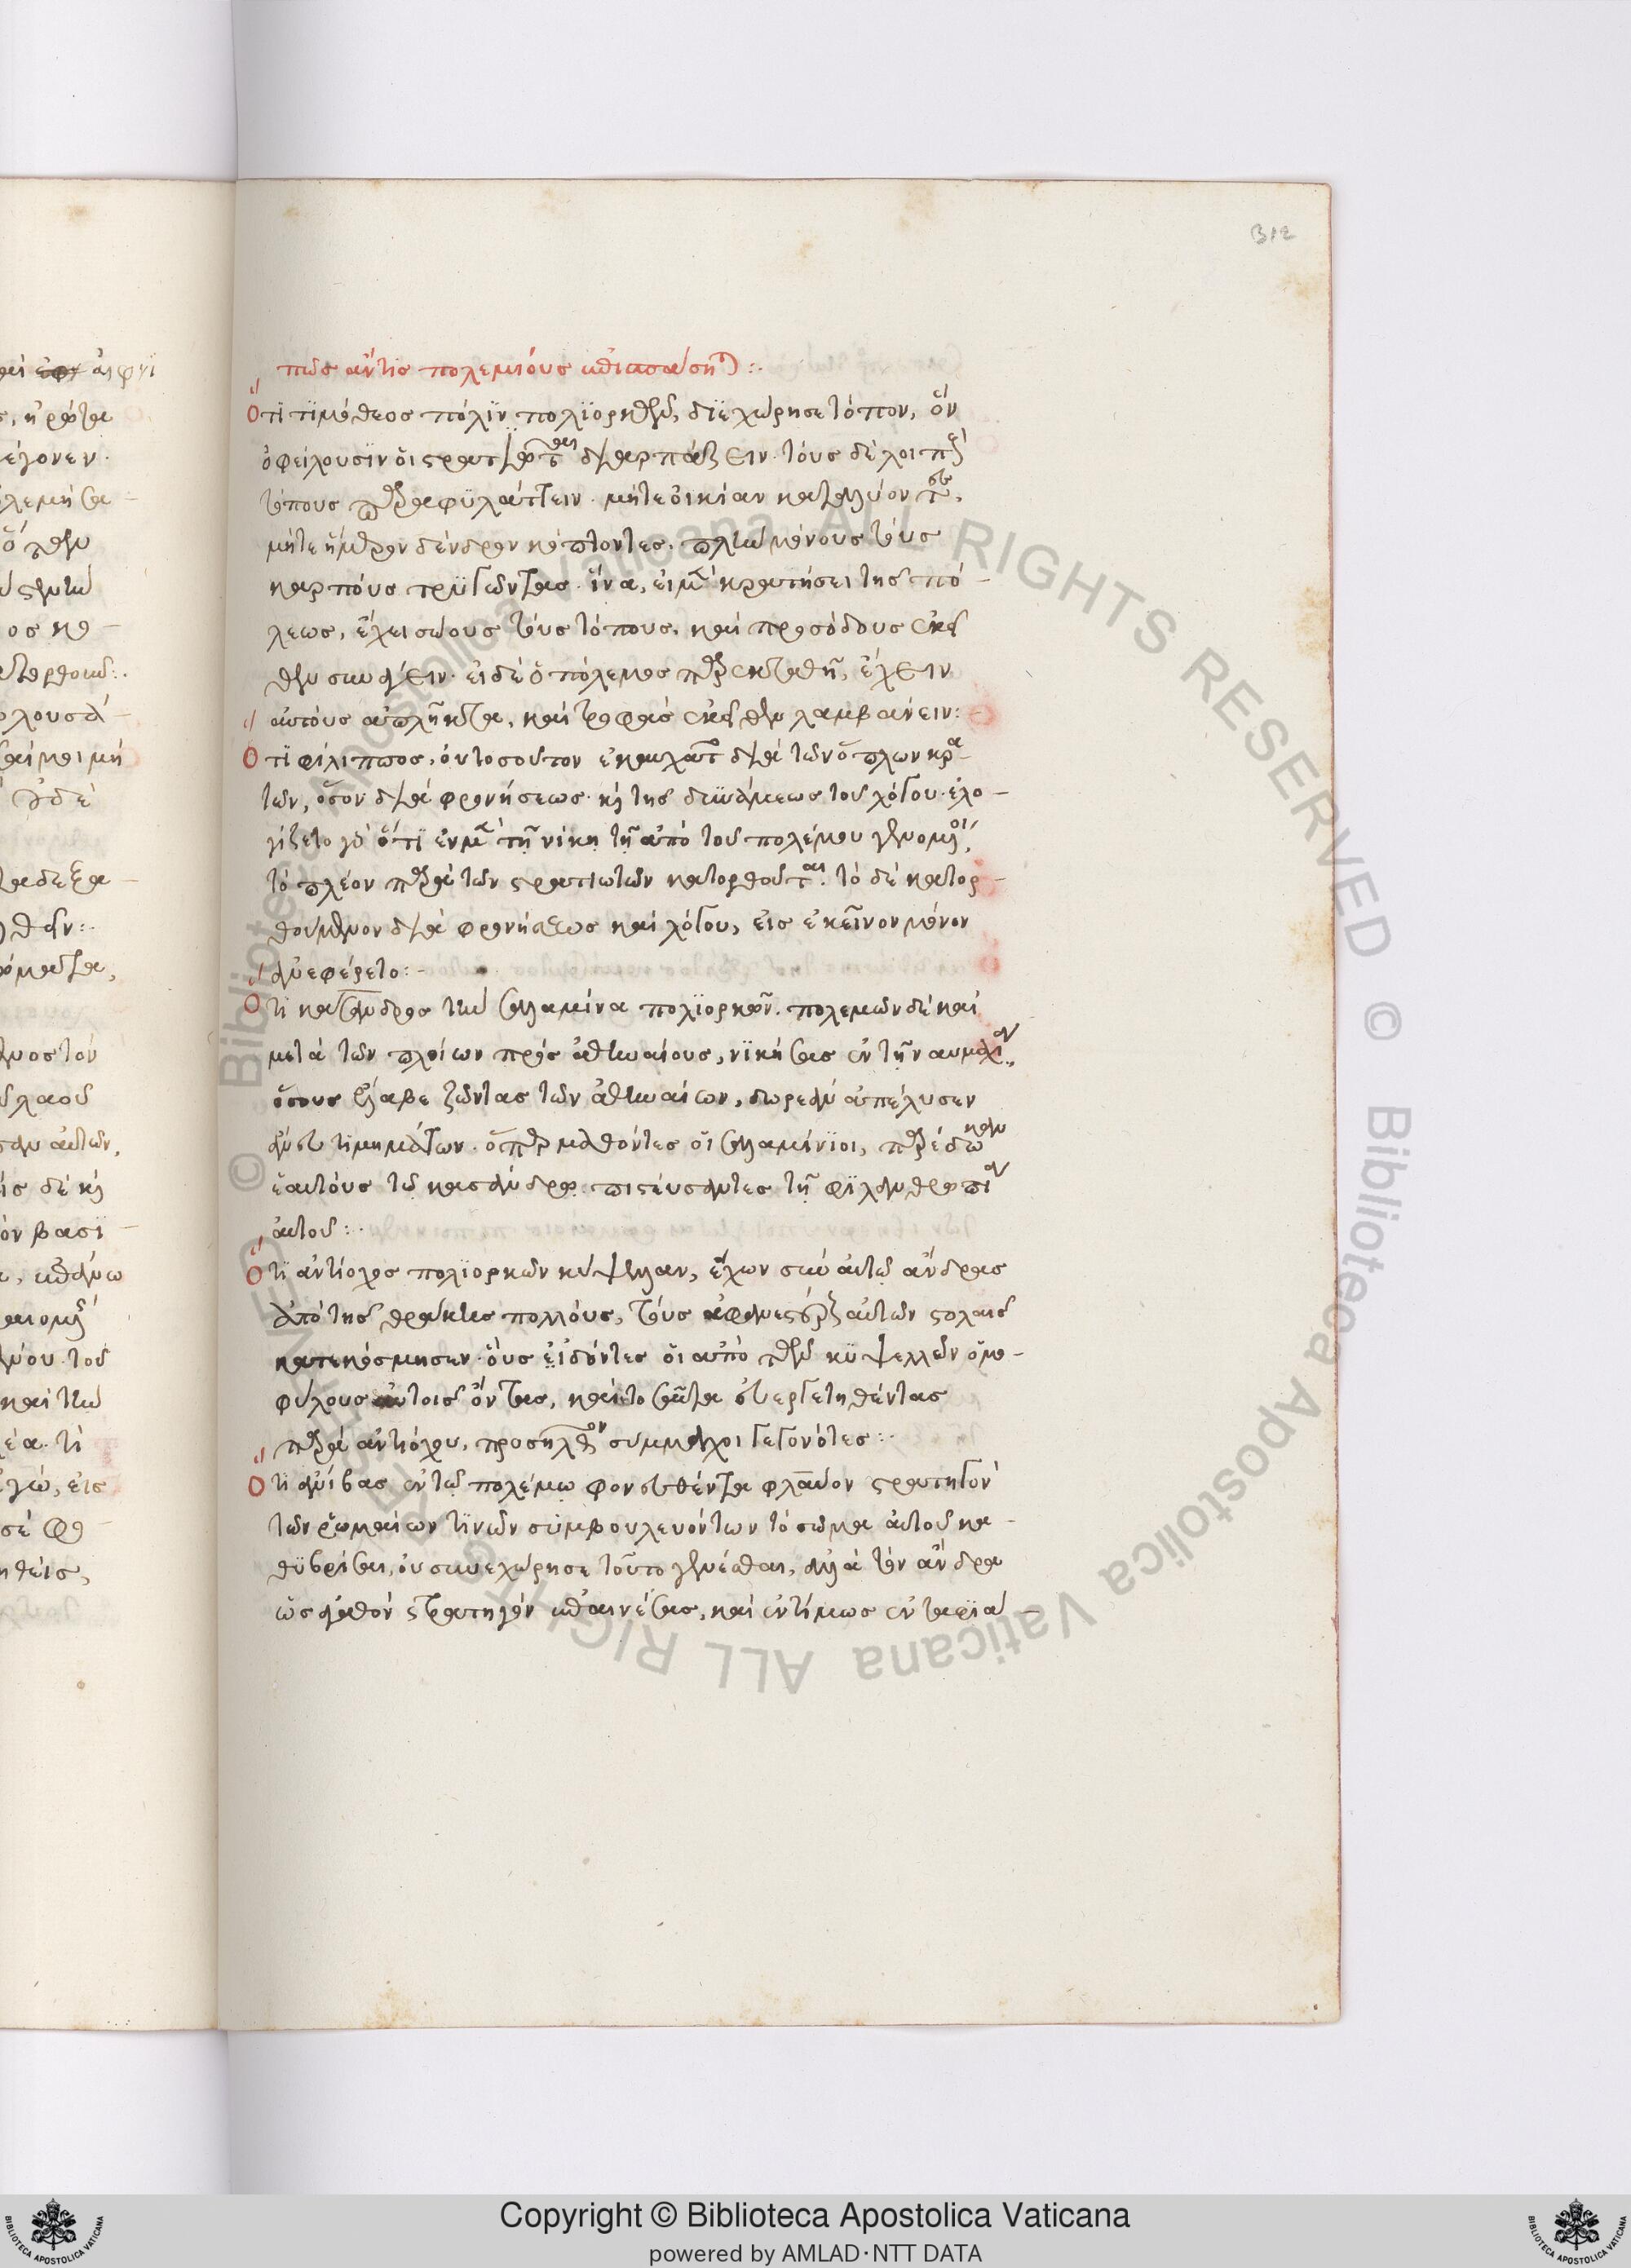 312
πῶς ἄν τις πολεμίους ἐπισπάσηται :.
Ὅτι τιμόθεος πόλϊν πολϊορκῶν, διεχώρησε τόπον, ὃν
ὀφείλουσϊν οἱ στρατιῶται διαρπάζειν. τοὺς δὲ λοιποὺς
τόπους παραφϋλάττειν. μήτε οἰκίαν καταλύοντες,
μήτε ἥμερον δένδρον κόπτοντες. πλὴν μόνους τοὺς
καρποὺς τρϋγῶντας. ἵνα, εἰ μὲν κρατήσει τῆς πό-
λεως, ἔχει σώους τοὺς τόπους, καὶ προσόδους ἐκεῖ
θεν συνάγειν. εἰ δὲ ὁ πόλεμος παρεκταθῆ, ἔχειν
αὐτοὺς ἀπλήκτα, καὶ τροφὰς ἐκεῖθεν λαμβάνειν:
Ὅτϊ φίλιππος, οὐ τοσοῦτον ἐκαυχᾶτο διὰ τῶν ὅπλων κρα-
τῶν, ὅσον διὰ φρονήσεως. καὶ τῆς δυνάμεως τοῦ λόγου. ἐλο-
γίζετο γὰρ ὅτϊ ἐν μὲν τῆ νίκη τῆ ἀπὸ τοῦ πολέμου γενομένη,
τὸ πλέον παρὰ τῶν στρατιωτῶν κατορθοῦται. τὸ δὲ κατορ-
θούμενον διὰ φρονήσεως καὶ λόγου, εἰς ἐκεῖνον μόνον
ἀνεφέρετο:-
Ὅτι κάσανδρος τὴν σαλαμίνα πολϊορκῶν. πολεμῶν δὲ καὶ
μετὰ τῶν πλοίων πρὸς ἀθηναίους, νϊκήσας ἐν τῆ ναυμαχία,
ὅσους ἔλαβε ζῶντας τῶν ἀθηναίων, δωρεὰν ἀπέλυσεν
ἄνευ τιμημάτων. ὅπερ μαθόντες οἱ σαλαμίνϊοι, παρέδωκαν
ἑαυτοὺς τῶ κασάνδρω. πιστεύσαντες τῆ φϊλανθρωπία
αὐτοῦ:.
Ὅτϊ ἀντίοχος πολϊορκῶν κύψελαν, ἔχων σὺν αὐτῶ ἄνδρας
ἀπὸ τῆς θράκης πολλοὺς, τοὺς ἀφανεστέρους αὐτῶν στολαῖς
κατεκόσμησεν. οὓς εἰδόντες οἱ ἀπὸ τῶν κϋψελλῶν ὁμο-
φύλους αὐτοῖς ὄντας, καὶ τοσαῦτα εὐεργετηθέντας
παρὰ ἀντιόχου, προσῆλθον σύμμαχοι γεγονότες:.
Ὅτι ἀνίβας ἐν τῶ πολέμω φονευθέντα φλαῦον στρατηγὸν
τῶν ῥωμαίων τϊνῶν συμβουλευόντων τὸ σῶμα αὐτοῦ κα-
θϋβρίσαι, οὐ συνεχώρησε τοῦτο γενέσθαι, ἀλλὰ τὸν ἄνδρα
ὡς ἀγαθὸν στρατηγὸν ἐπαινέσας, καὶ ἐντίμως ἐνταφϊά-
Copyright © Biblioteca Apostolica Vaticana
powered by AMLAD·NTT DATA